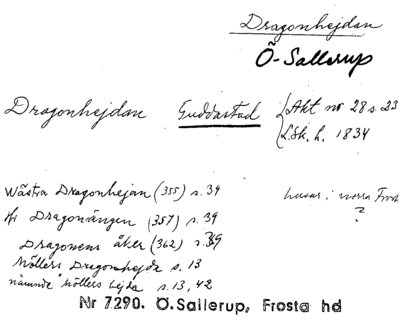 Dragonhejdan
Ö-Sallerup
Dragonhejdan Guddastad Akt nr 28 s. 23
L.Sk. h. 1834
Wästra Dragonhejan (355) s. 39
Dragonängen (357) s. 39
Dragonens åker (362) s. 39
Möllers Dragonhejda s. 13
nämnde Möllers hejda s. 13, 42
husar i norra Frosta
?
Nr 7290. Ö.Sallerup, Frosta hd